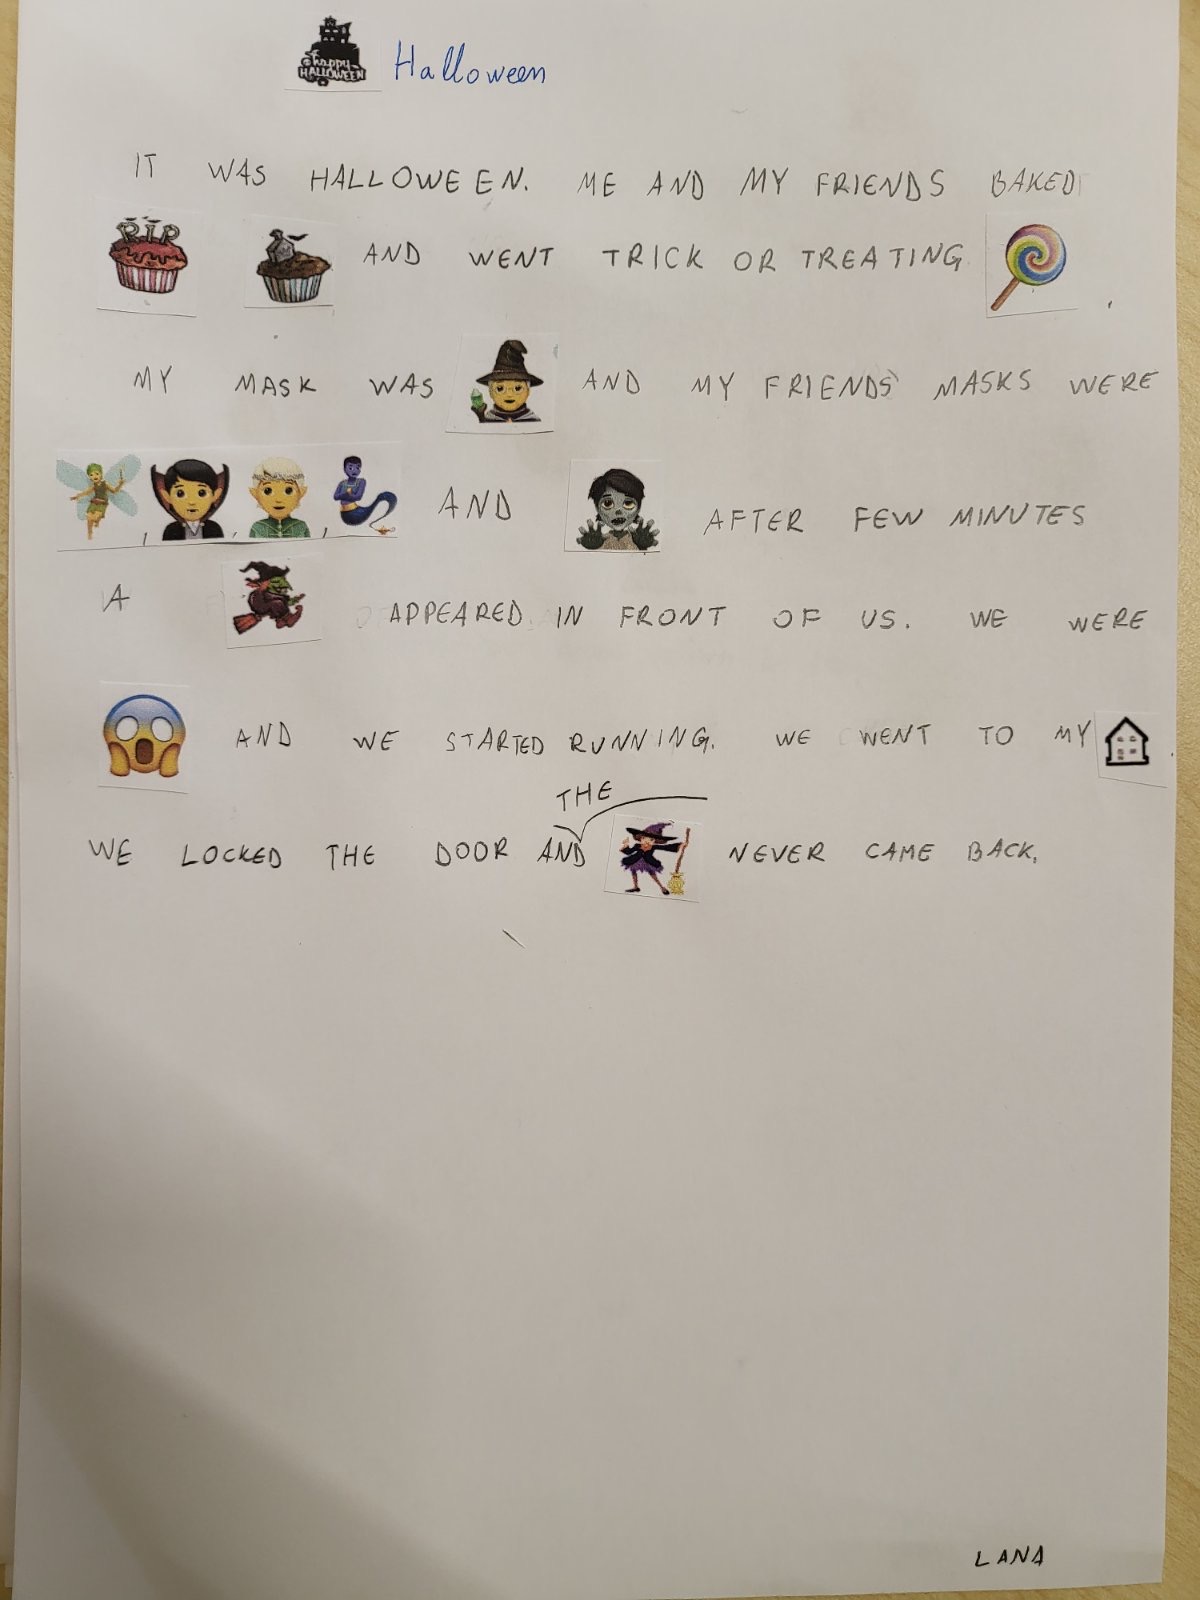 happy HALLOWEEN Halloween
IT WAS HALLOWEEN. ME AND MY FRIENDS BAKED
RIP AND WENT TRICK OR TREATING .
MY MASK WAS AND MY FRIENDS' MASKS WERE
, , , AND AFTER FEW MINUTES
A APPEARED IN FRONT OF US. WE WERE
AND WE STARTED RUNNING. WE WENT TO MY .
THE
WE LOCKED THE DOOR AND NEVER CAME BACK.
LANA